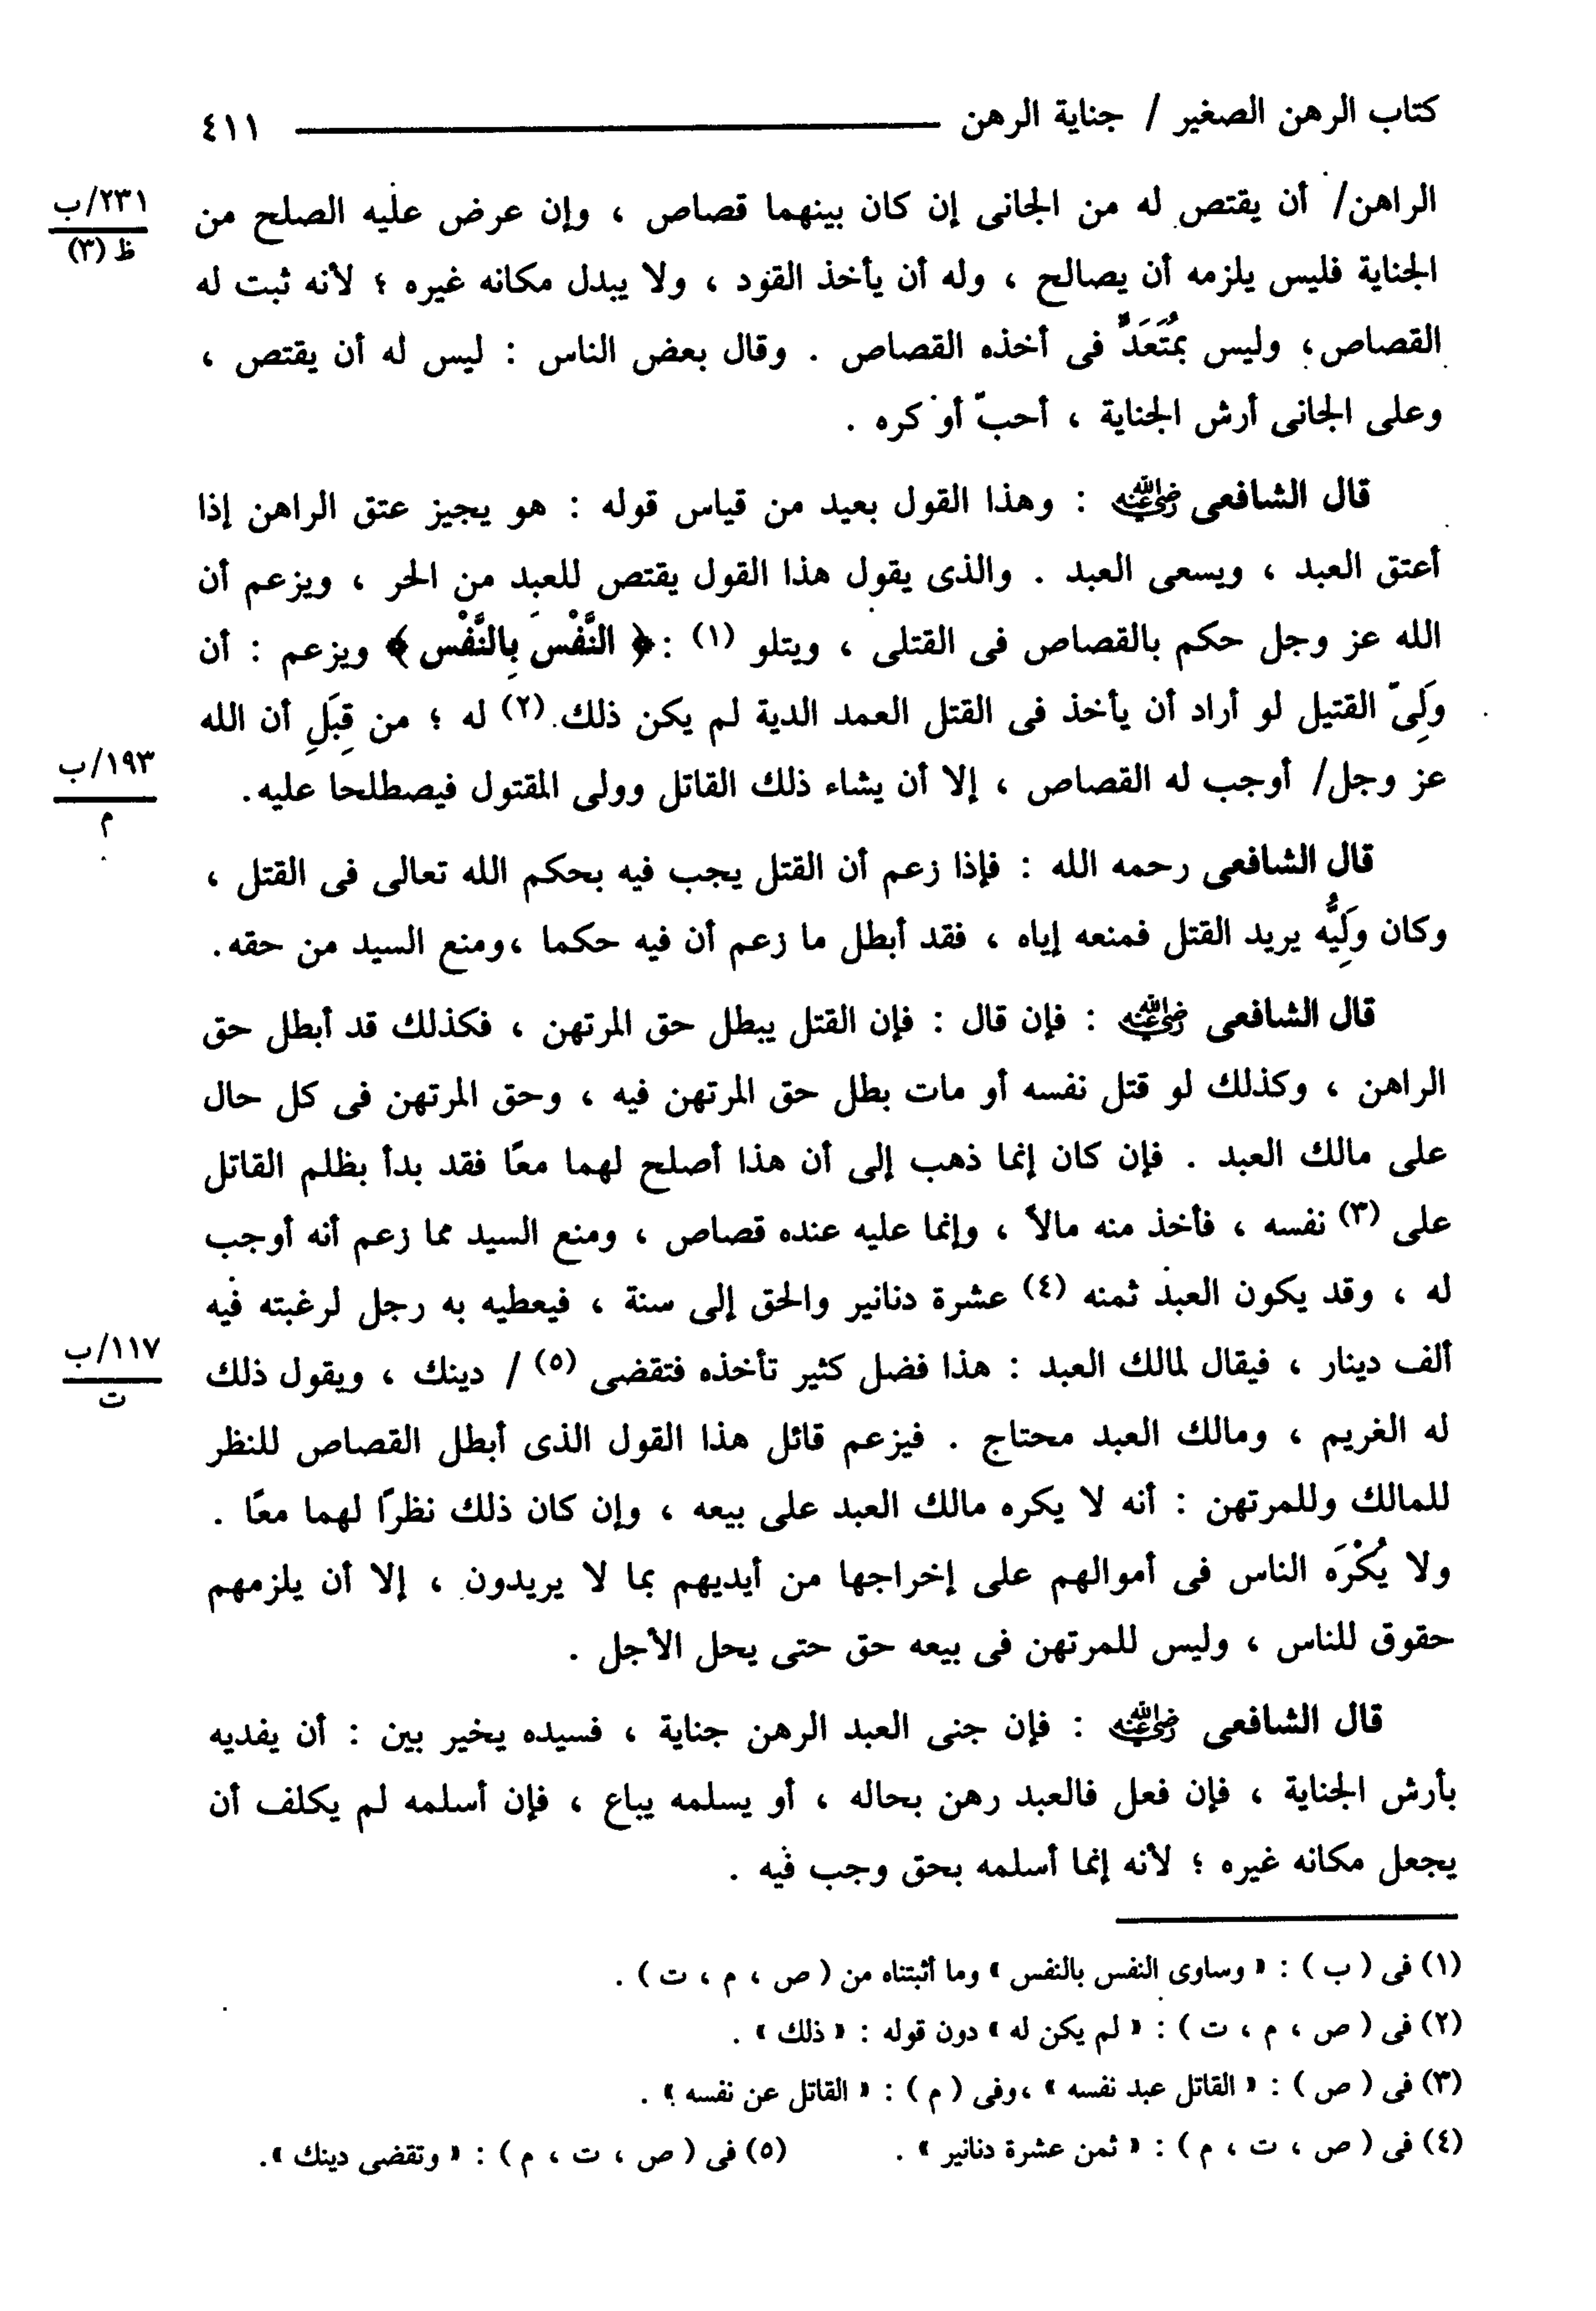 كتاب الرهن الصغير / جناية الرهن ٤١١
الراهن/ أن يقتص له من الجانى إن كان بينهما قصاص ، وإن عرض عليه الصلح من
٢٣١/ب
ظ (٣)
الجناية فليس يلزمه أن يصالح ، وله أن يأخذ القود ، ولا يبدل مكانه غيره ؛ لأنه ثبت له
القصاص، وليس بمُتَعَدٍّ فى أخذه القصاص . وقال بعض الناس : ليس له أن يقتص ،
وعلى الجانى أرش الجناية ، أحبّ أو كره .
قال الشافعى رضي الله عنه : وهذا القول بعيد من قياس قوله : هو يجيز عتق الراهن إذا
أعتق العبد ، ويسعى العبد . والذى يقول هذا القول يقتص للعبد من الحر ، ويزعم أن
الله عز وجل حكم بالقصاص فى القتلى ، ويتلو (١) : ﴿ النَّفْسَ بِالنَّفْسِ ﴾ ويزعم : أن
وَلِىّ القتيل لو أراد أن يأخذ فى القتل العمد الدية لم يكن ذلك (٢) له ؛ من قِبَلِ أن الله
عز وجل/ أوجب له القصاص ، إلا أن يشاء ذلك القاتل وولى المقتول فيصطلحا عليه.
١٩٣/ب
م
قال الشافعى رحمه الله : فإذا زعم أن القتل يجب فيه بحكم الله تعالى فى القتل ،
وكان وَلِيُّه يريد القتل فمنعه إياه ، فقد أبطل ما زعم أن فيه حكما ،ومنع السيد من حقه.
قال الشافعى رضي الله عنه : فإن قال : فإن القتل يبطل حق المرتهن ، فكذلك قد أبطل حق
الراهن ، وكذلك لو قتل نفسه أو مات بطل حق المرتهن فيه ، وحق المرتهن فى كل حال
على مالك العبد . فإن كان إنما ذهب إلى أن هذا أصلح لهما معًا فقد بدأ بظلم القاتل
على (٣) نفسه ، فأخذ منه مالاً ، وإنما عليه عنده قصاص ، ومنع السيد مما زعم أنه أوجب
له ، وقد يكون العبد ثمنه (٤) عشرة دنانير والحق إلى سنة ، فيعطيه به رجل لرغبته فيه
ألف دينار ، فيقال لمالك العبد : هذا فضل كثير تأخذه فتقضى (٥) / دينك ، ويقول ذلك
١١٧/ب
ت
له الغريم ، ومالك العبد محتاج . فيزعم قائل هذا القول الذى أبطل القصاص للنظر
للمالك وللمرتهن : أنه لا يكره مالك العبد على بيعه ، وإن كان ذلك نظرًا لهما معًا .
ولا يُكْرَه الناس فى أموالهم على إخراجها من أيديهم بما لا يريدون ، إلا أن يلزمهم
حقوق للناس ، وليس للمرتهن فى بيعه حق حتى يحل الأجل .
قال الشافعى رضي الله عنه : فإن جنى العبد الرهن جناية ، فسيده يخير بين : أن يفديه
بأرش الجناية ، فإن فعل فالعبد رهن بحاله ، أو يسلمه يباع ، فإن أسلمه لم يكلف أن
يجعل مكانه غيره ؛ لأنه إنما أسلمه بحق وجب فيه .
(١) فى ( ب ) : « وساوى النفس بالنفس » وما أثبتناه من ( ص ، م ، ت ) .
(٢) فى ( ص ، م ، ت ) : « لم يكن له » دون قوله : « ذلك » .
(٣) فى ( ص ) : « القاتل عبد نفسه » ،وفى ( م ) : « القاتل عن نفسه » .
(٤) فى ( ص ، ت ، م ) : « ثمن عشرة دنانير » . (٥) فى ( ص ، ت ، م ) : « وتقضى دينك ».